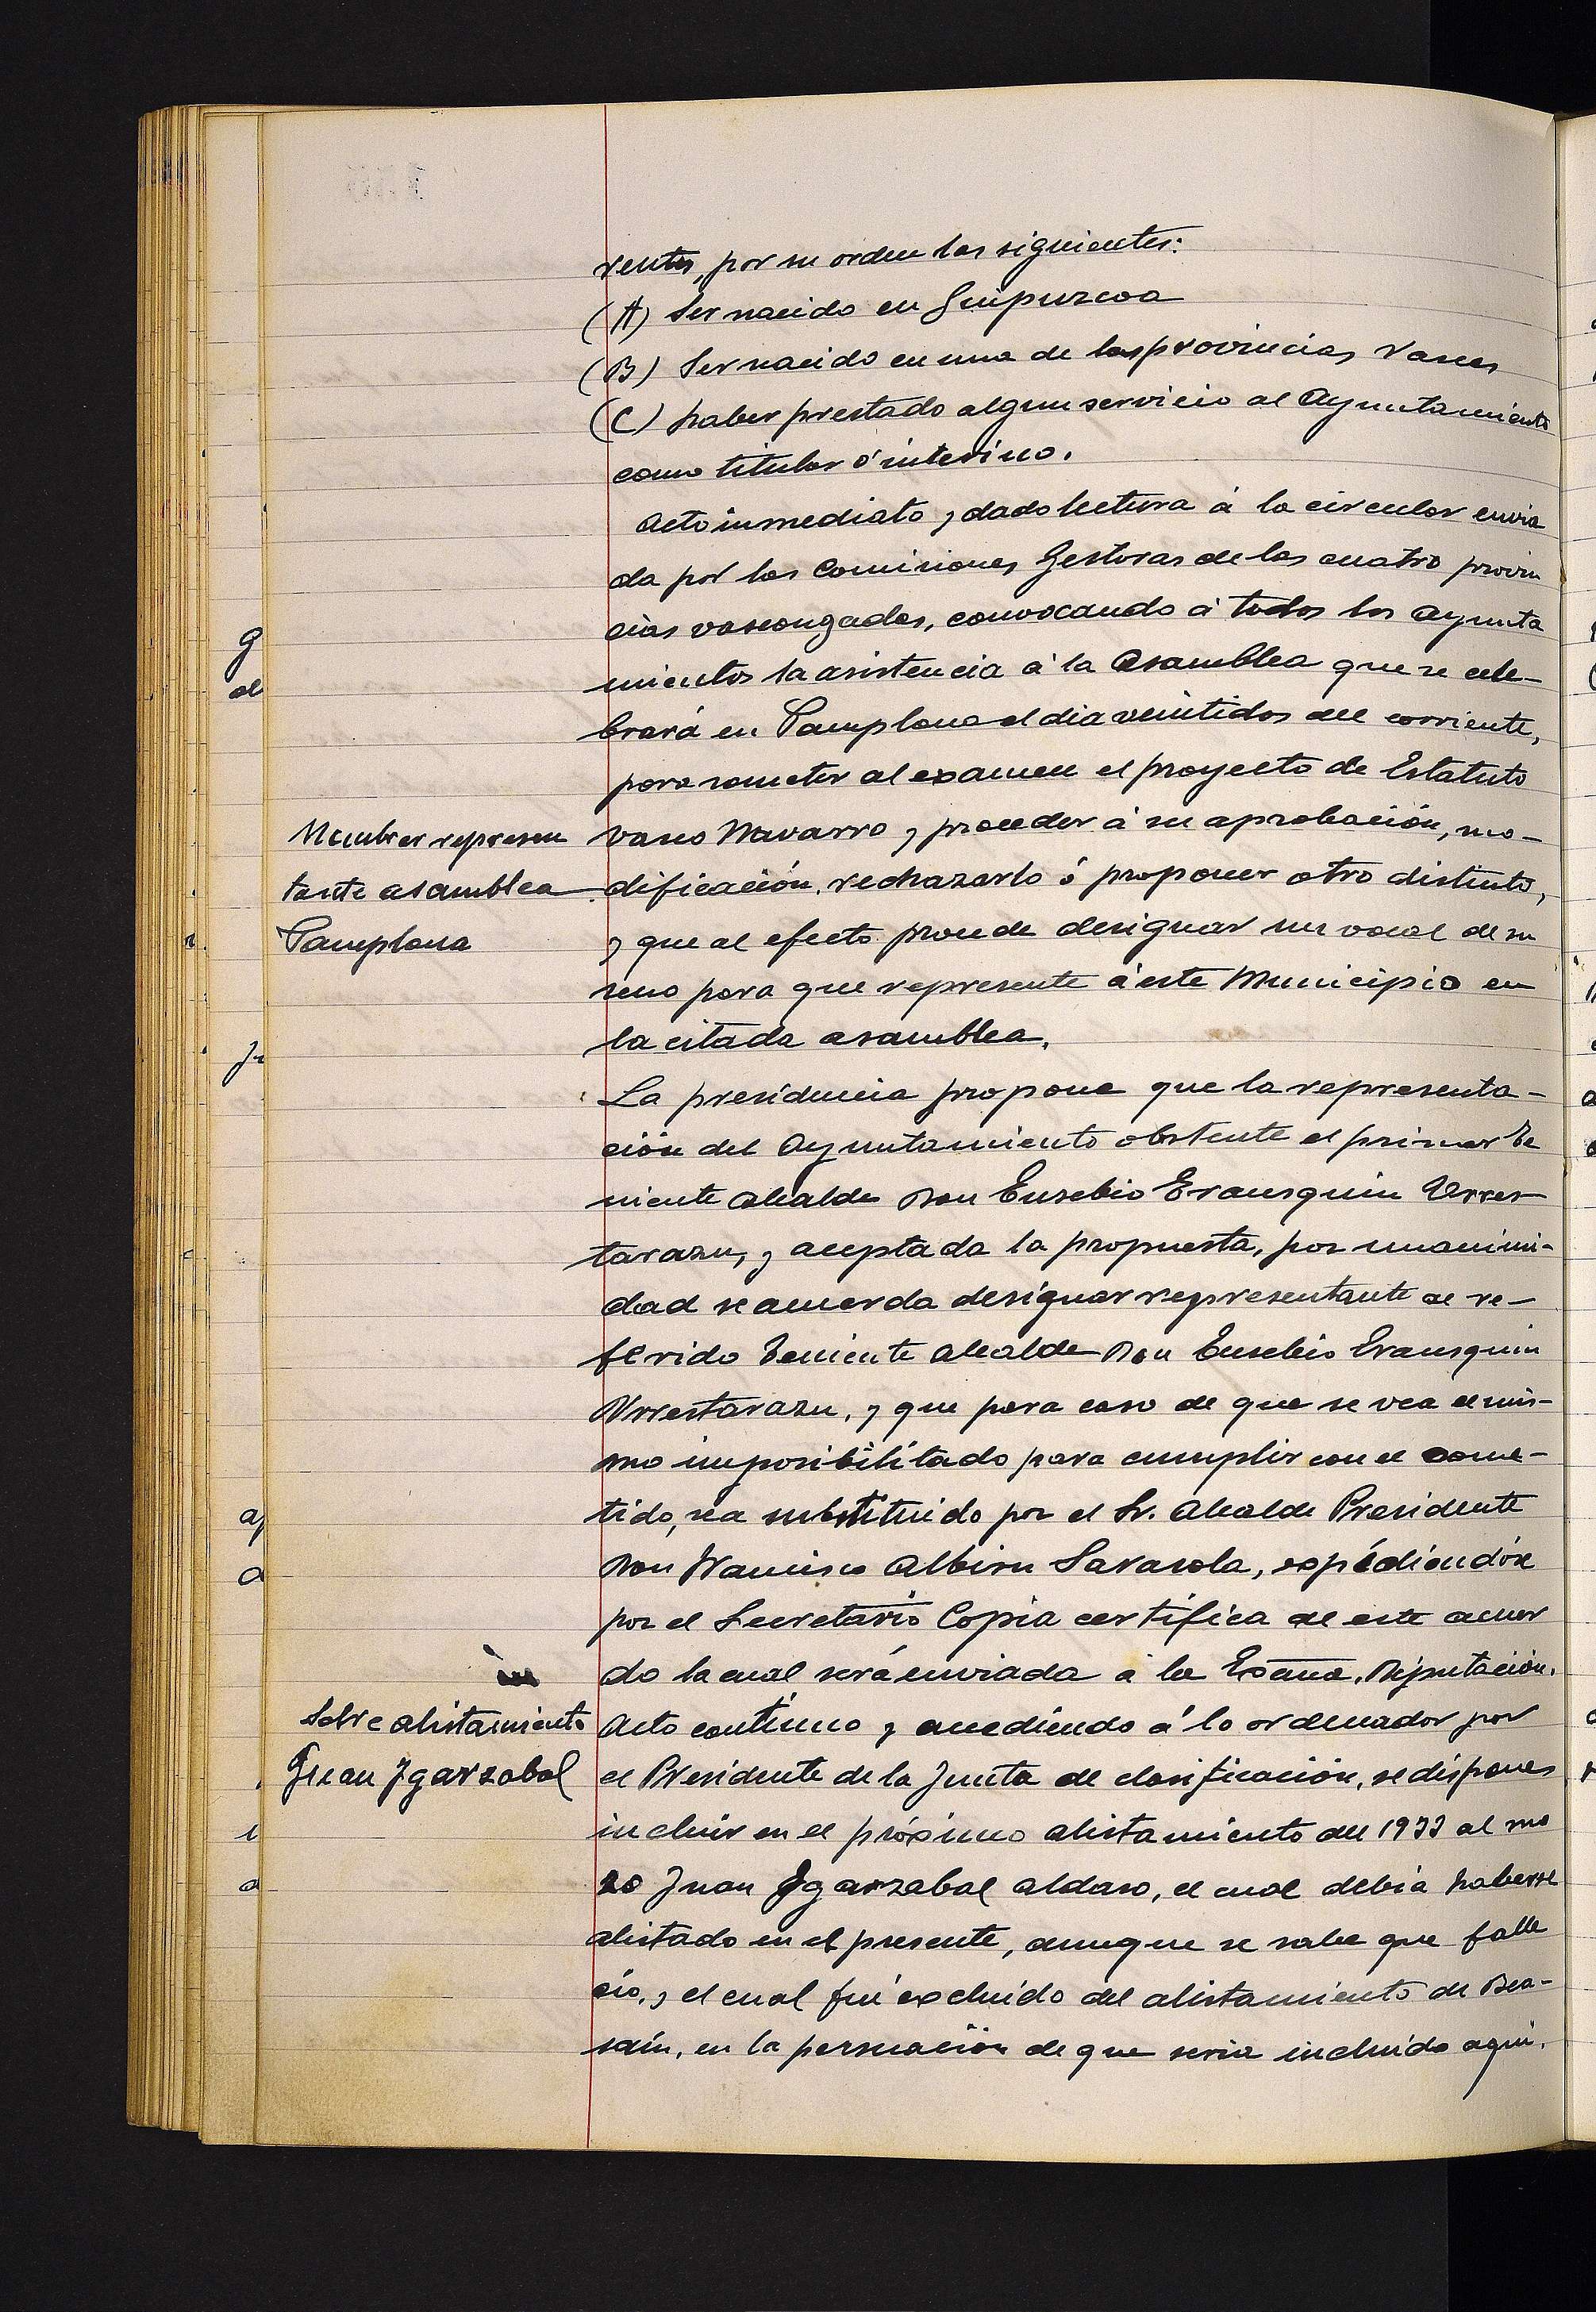 rentes, por su orden los siguientes:
(A) Ser nacido en Guipuzcoa
(B) Ser nacido en una de las provincias Vascas
(C) haber prestado algun servicio al Ayuntamiento
como titular ó interino.
Acto inmediato y dado lectura á la circular envia
da por las Comisiones Gestoras de las cuatro provin
cias vascongadas, convocando á todos los ayunta
mientos la asistencia á la Asamblea que se cele-
brará en Pamplona el dia veintidos del corriente,
para someter al examen el proyecto de Estatuto
Nombrar represen
tante asamblea
Pamplona
Vasco Navarro y proceder á su aprobación, mo-
dificación, rechazarlo ó proponer otro distinto,
y que al efecto procede designar un vocal de su
seno para que represente á este Municipio en
la citada asamblea.
La presidencia propone que la representa-
ción del Ayuntamiento obstente el primer te
niente alcalde Don Eusebio Erausquin Urres-
tarazu, y aceptada la propuesta, por unanimi-
dad se acuerda designar representante al re-
ferido teniente alcalde Don Eusebio Erausquin
Urrestarazu, y que para caso de que se vea el mis-
mo imposibilitado para cumplir con el come-
tido, sea substituido por el Sr. Alcalde Presidente
Don Francisco Albisu Sarasola, expédiendóse
por el Secretario Copia certifica de este acuer
do la cual será enviada á la Excma. Diputación.
Sobre alistamiento
Juan Ygarzabal
Acto continuo y accediendo á lo ordenador por
el Presidente de la Junta de clasificación, se dispones
incluir en el próximo alistamiento del 1933 al mo
zo Juan Ygarzabal Aldaso, el cual debia haberse
alistado en el presente, aunque se sabe que falle
cío, y el cual fué excluido del alistamiento de Bea-
saín, en la persuación de que seria incluido aqui.